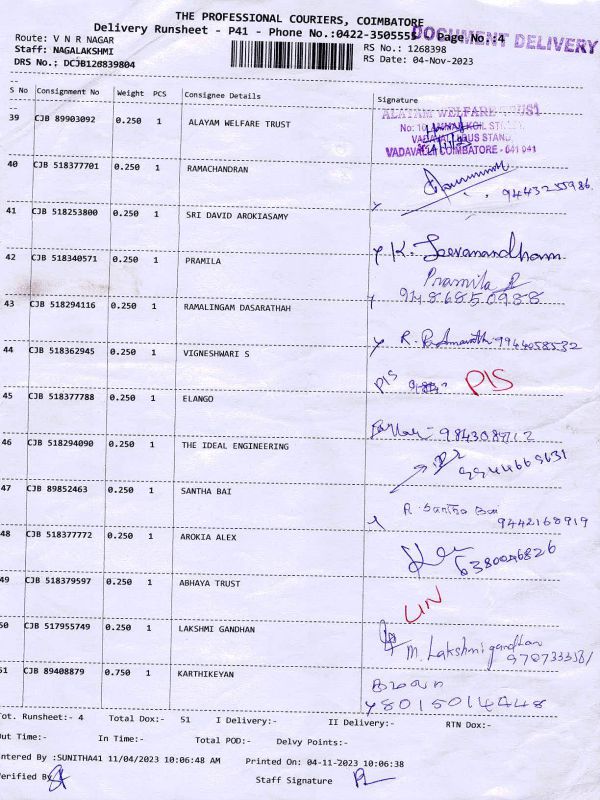 THE PROFESSIONAL COURIERS, COIMBATORE
Delivery Runsheet - P41 - Phone No.:0422-3505555 Page No.:4
DOCUMENT DELIVERY
Route: V N R NAGAR
Staff: NAGALAKSHMI
DRS No.: DCJB126839804
RS No.: 1268398
RS Date: 04-Nov-2023
S No Consignment No Weight PCS Consignee Details Signature
39 CJB 89903092 0.250 1 ALAYAM WELFARE TRUST
ALAYAM WELFARE TRUST
VADAVALLI COIMBATORE - 641 041
40 CJB 518377701 0.250 1 RAMACHANDRAN
9443255986
41 CJB 518253800 0.250 1 SRI DAVID AROKIASAMY
K. Jeevanandham
42 CJB 518340571 0.250 1 PRAMILA
Pramila
9486850988
43 CJB 518294116 0.250 1 RAMALINGAM DASARATHAH
9944058532
44 CJB 518362945 0.250 1 VIGNESHWARI S
PIS PIS
45 CJB 518377788 0.250 1 ELANGO
46 CJB 518294090 0.250 1 THE IDEAL ENGINEERING
47 CJB 89852463 0.250 1 SANTHA BAI
R. Santha Bai
9442168919
48 CJB 518377772 0.250 1 AROKIA ALEX
6380046826
49 CJB 518379597 0.250 1 ABHAYA TRUST
50 CJB 517955749 0.250 1 LAKSHMI GANDHAN
M. Lakshmigandhan
51 CJB 89408879 0.750 1 KARTHIKEYAN
8015014448
Tot. Runsheet:- 4 Total Dox:- 51 I Delivery:- II Delivery:- RTN Dox:-
Out Time:- In Time:- Total POD:- Delvy Points:-
Entered By :SUNITHA41 11/04/2023 10:06:48 AM Printed On: 04-11-2023 10:06:38
Verified By
Staff Signature